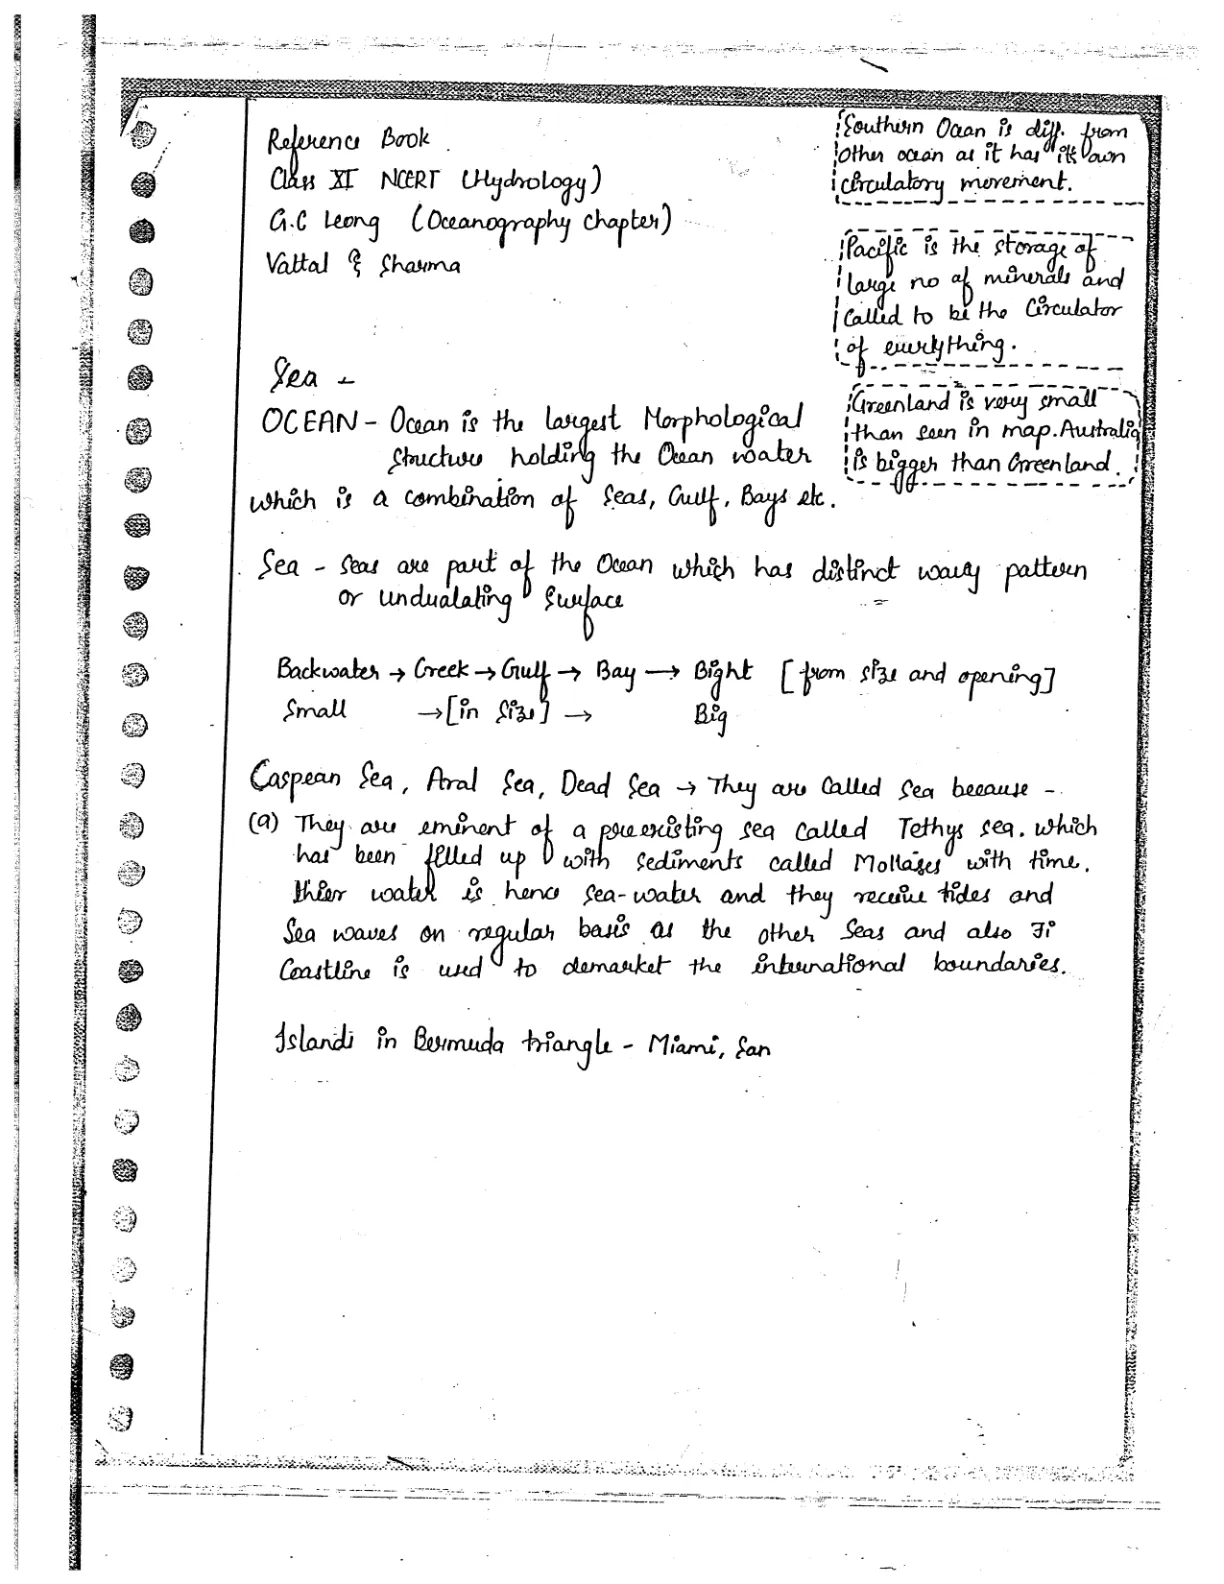 Reference Book
Class XI NCERT (Hydrology)
G.C Leong (Oceanography chapter)
Vattal & Sharma
Southern Ocean is diff. from
other ocean as it has its own
circulatory movement.
Pacific is the storage of
large no of minerals and
called to be the Circulator
of everything.
Greenland is very small
than seen in map. Australia
is bigger than Greenland.
Sea -
OCEAN - Ocean is the largest Morphological
structure holding the Ocean water
which is a combination of Seas, Gulf, Bays etc.
Sea - Seas are part of the Ocean which has distinct wavy pattern
or undualating surface
Backwater → Creek → Gulf → Bay → Bight [from size and opening]
Small → [in size] → Big
Caspean Sea, Aral Sea, Dead Sea → They are called Sea because -
(a) They are eminent of a pre existing sea called Tethys sea. which
has been filled up with sediments called Mollases with time.
thier water is hence sea-water and they receive tides and
Sea waves on regular basis as the other Seas and also
Coastline is used to demarket the international boundaries.
Islands in Bermuda triangle - Miami, San